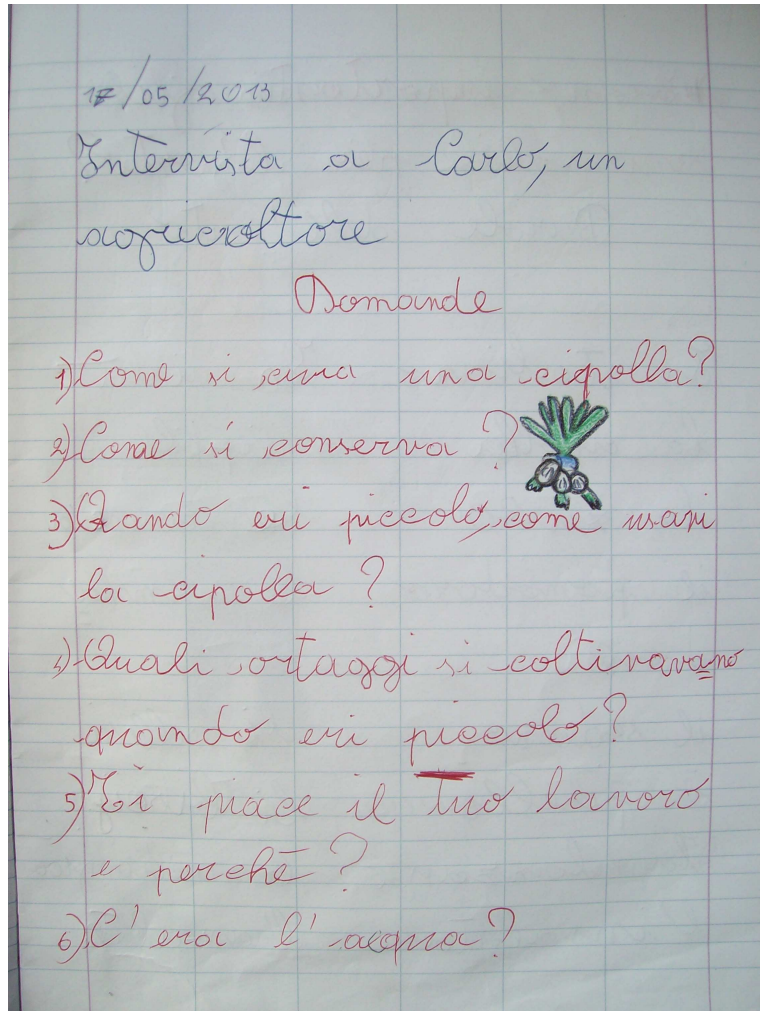 17/05/2013
Intervista a Carlo, un
agricoltore
Domande
1) Come si cura una cipolla?
2) Come si conserva?
3) Quando eri piccolo, come usavi
la cipolla?
4) Quali ortaggi si coltivavano
quando eri piccolo?
5) Ti piace il tuo lavoro
e perchè?
6) C'era l'acqua?